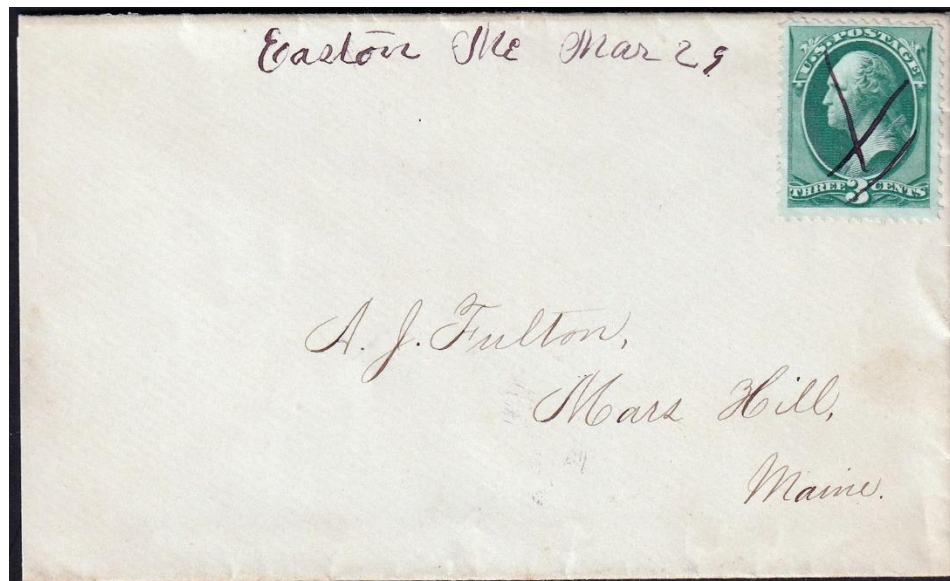 Easton Me Mar 29
U.S. POSTAGE
THREE 3 CENTS
A. J. Fulton,
Mars Hill,
Maine.